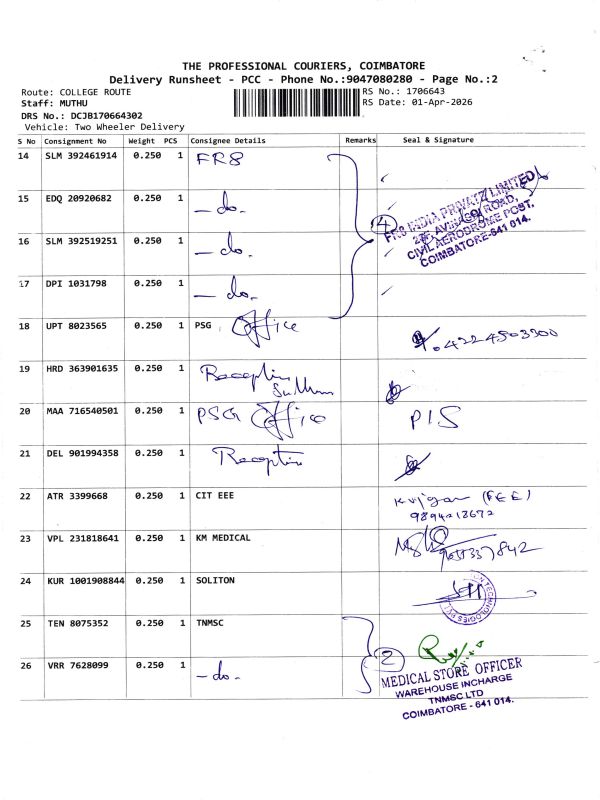 THE PROFESSIONAL COURIERS, COIMBATORE
Delivery Runsheet - PCC - Phone No.:9047080280 - Page No.:2
Route: COLLEGE ROUTE
Staff: MUTHU
DRS No.: DCJB170664302
Vehicle: Two Wheeler Delivery
RS No.: 1706643
RS Date: 01-Apr-2026
S No Consignment No Weight PCS Consignee Details Remarks Seal & Signature
14 SLM 392461914 0.250 1 FR8
15 EDQ 20920682 0.250 1 -do-
16 SLM 392519251 0.250 1 -do-
17 DPI 1031798 0.250 1 -do-
4
FR8 INDIA PRIVATE LIMITED
ROAD,
CIVIL AERODROME POST,
COIMBATORE-641 014.
18 UPT 8023565 0.250 1 PSG Office 04224503300
19 HRD 363901635 0.250 1 Reception
20 MAA 716540501 0.250 1 PSG Office PIS
21 DEL 901994358 0.250 1 Reception
22 ATR 3399668 0.250 1 CIT EEE
23 VPL 231818641 0.250 1 KM MEDICAL
24 KUR 1001908844 0.250 1 SOLITON
25 TEN 8075352 0.250 1 TNMSC
26 VRR 7628099 0.250 1 -do-
2
MEDICAL STORE OFFICER
WAREHOUSE INCHARGE
TNMSC LTD
COIMBATORE - 641 014.